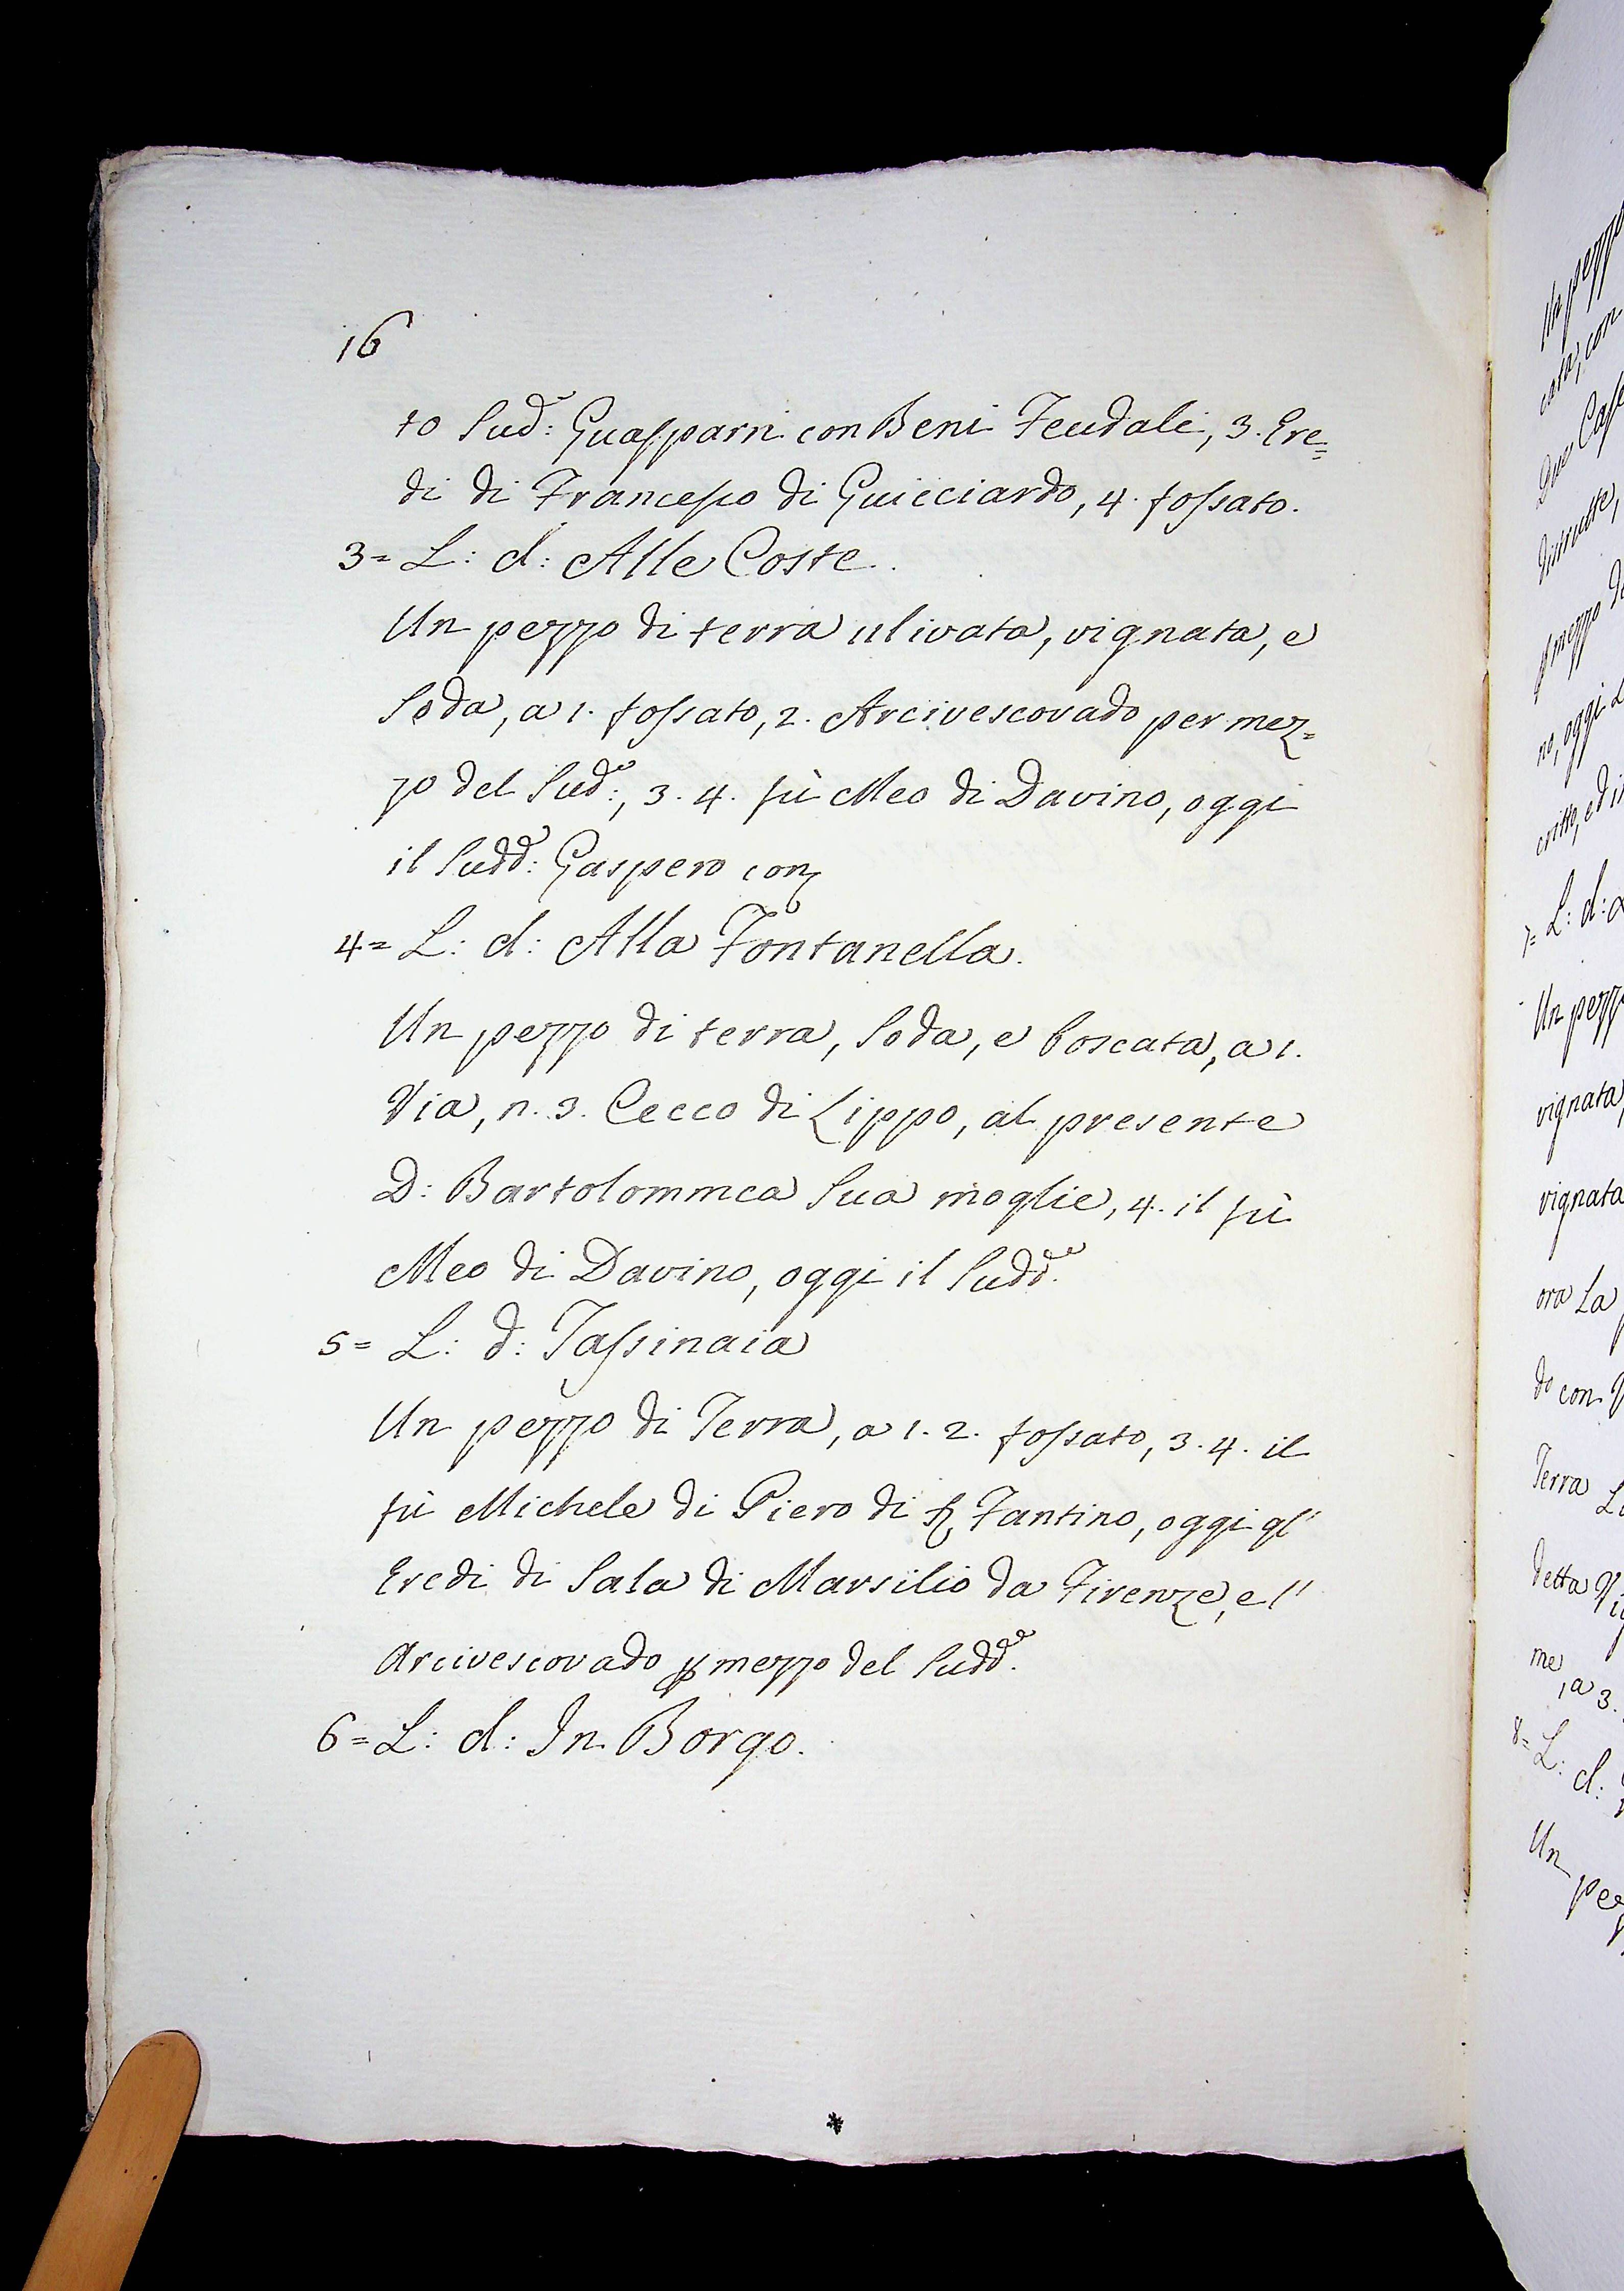 16
to Sud.º Guasparri con Beni Feudali, 3. Ere=
di di Francesco di Guicciardo, 4. fossato.
3= L: d: Alle Coste.
Un pezzo di terra ulivata, vignata, e
Soda, a 1. fossato, 2. Arcivescovado per mez=
zo del Sud.º, 3. 4. fù Meo di Davino, oggi
il Sudd.º Gaspero con
4= L: d: Alla Fontanella.
Un pezzo di terra, Soda, e boscata, a 1.
Via, n. 3. Cecco di Lippo, al presente
D: Bartolommea Sua moglie, 4. il fù
Meo di Davino, oggi il Sudd.º
5= L: d: Tassinaia
Un pezzo di Terra, a 1. 2. fossato, 3. 4. il
fù Michele di Piero di Fantino, oggi gl'
Eredi di Sala di Marsilio da Firenze, e l'
Arcivescovado p mezzo del Sudd.º
6= L: d: In Borgo.
Un pezzo
cata, con
Due Case
distrutte,
p mezzo d
no, oggi L
critto, ed i
7= L: d:
Un pezz
vignata,
vignata
ora La
do con V
Terra
detta Vi
me, a 3.
8= L: d:
Un pez